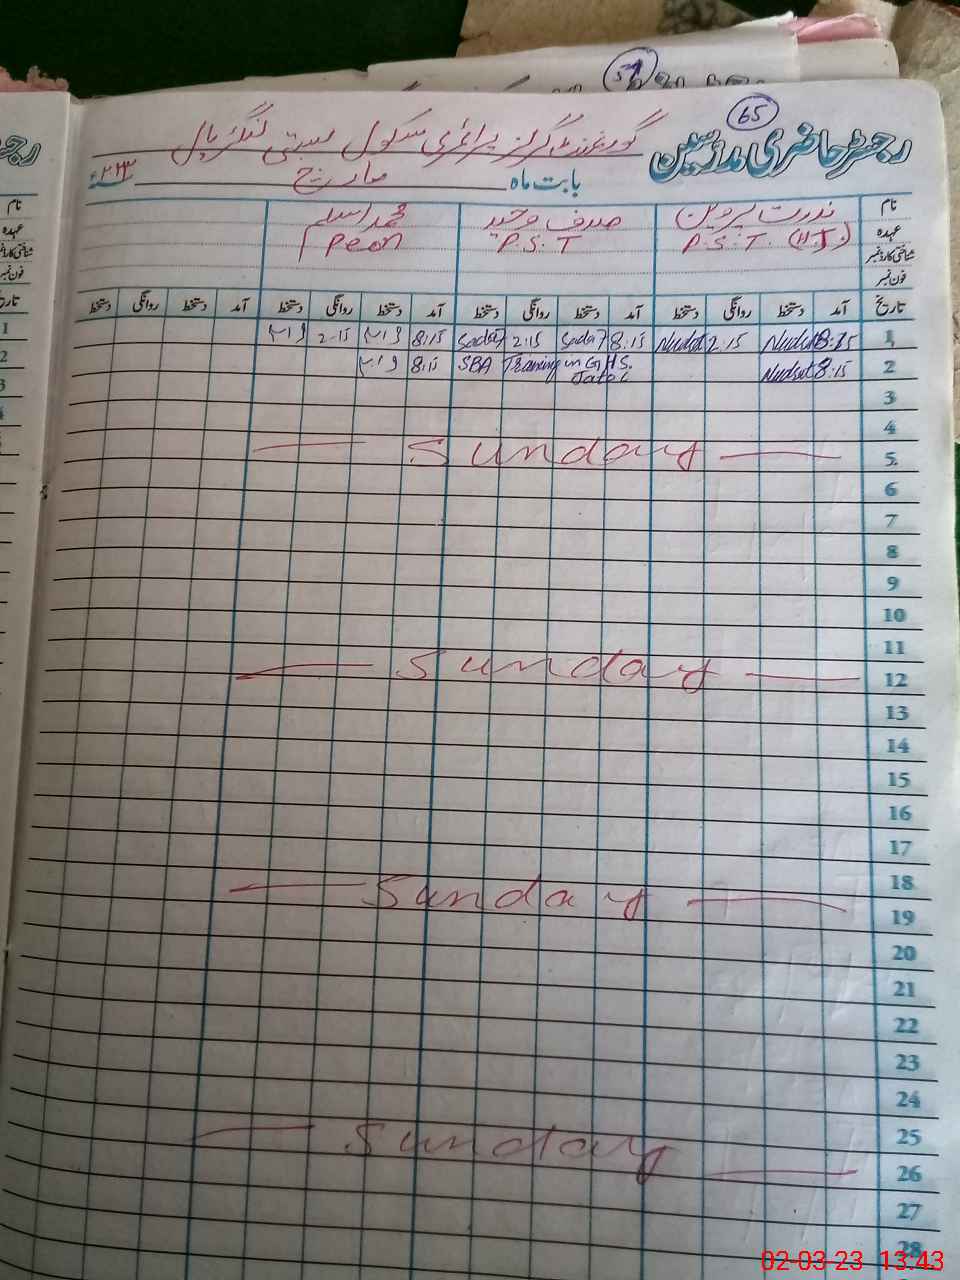 65
رجسٹر حاضری مدرسین گورنمنٹ گرلز پرائمری سکول بستی لنگڑیال
بابت ماہ مارچ ۲۰۲۳ء
نام ندرت پروین صدف وحید محمد اسلم
عہدہ P.S.T. (H.T.) P.S.T Peon
شناختی کارڈ نمبر
فون نمبر
تاریخ آمد دستخط روانگی دستخط آمد دستخط روانگی دستخط آمد دستخط روانگی دستخط آمد دستخط روانگی دستخط
1 8:15 2:15 8:15 2:15 8:15 2:15
2 8:15 SBA Training in GHS. 8:15
3
4
5 Sunday
6
7
8
9
10
11
12 Sunday
13
14
15
16
17
18
19 Sunday
20
21
22
23
24
25
26 Sunday
27
28
02-03-23 13:43